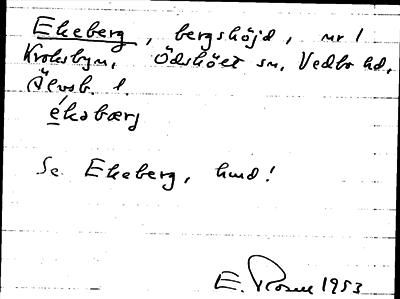 Ekeberg, bergshöjd, nr 1
Kroksbyn, Ödskölt sn, Vedbo hd,
Älvsb. l.
ékəbærg
Se Ekeberg, hmd!
E. Rosen 1953